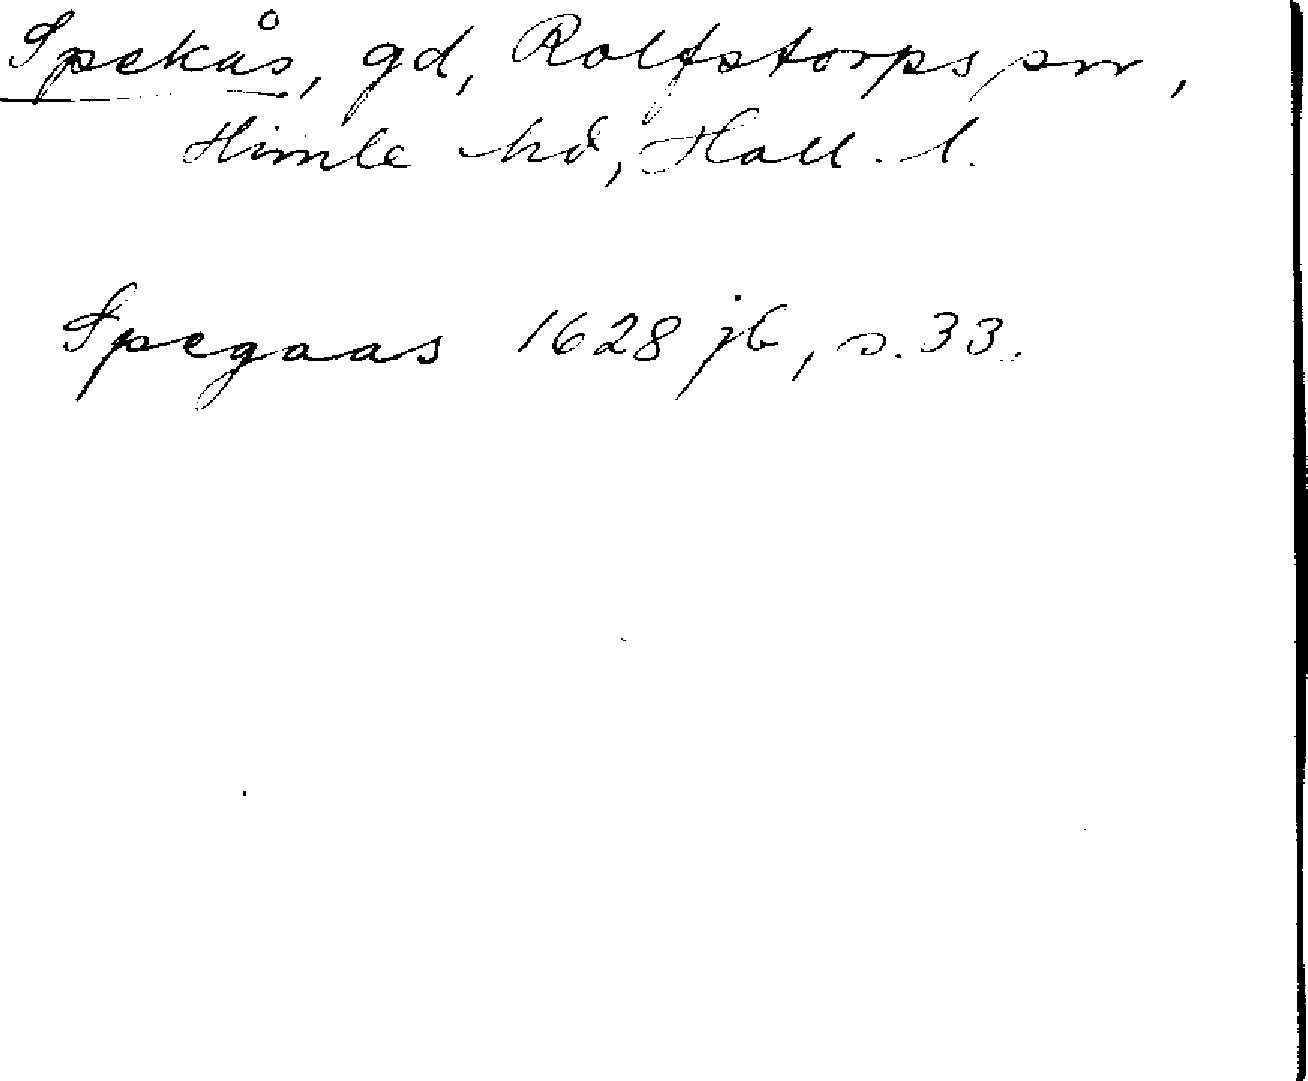 Spekås, gd, Rolfstorps sn,
Himle hd, Hall. l.
Spegaas 1628 jb, s. 33.